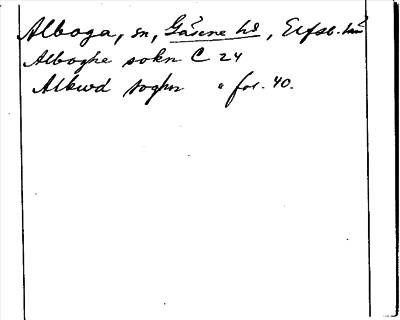 Alboga, sn, Gäsene hd, Elfsb. län
Alboghe sokn C 24
Alewd soghn " fol. 40.